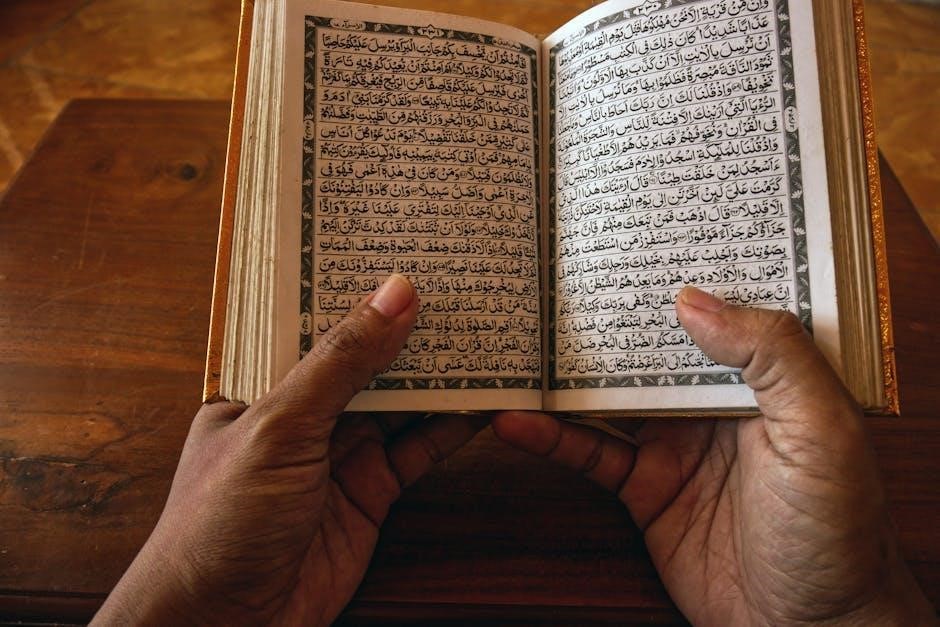 وَاِنْ مِّنْ قَرْيَةٍ اِلَّا نَحْنُ مُهْلِكُوْهَا قَبْلَ يَوْمِ الْقِيٰمَةِ
عَذَابًا شَدِيْدًا كَانَ ذٰلِكَ فِى الْكِتٰبِ مَسْطُوْرًا
اَنْ نُّرْسِلَ بِالْاٰيٰتِ اِلَّا اَنْ كَذَّبَ بِهَا الْاَوَّلُوْنَ وَاٰتَيْنَا
ثَمُوْدَ النَّاقَةَ مُبْصِرَةً فَظَلَمُوْا بِهَا وَمَا نُرْسِلُ بِالْاٰيٰتِ
تَخْوِيْفًا وَاِذْ قُلْنَا لَكَ اِنَّ رَبَّكَ اَحَاطَ بِالنَّاسِ وَمَا جَعَلْنَا
الرُّءْيَا الَّتِيْ اَرَيْنٰكَ اِلَّا فِتْنَةً لِّلنَّاسِ وَالشَّجَرَةَ الْمَلْعُوْنَةَ
فِى الْقُرْاٰنِ وَنُخَوِّفُهُمْ فَمَا يَزِيْدُهُمْ اِلَّا طُغْيَانًا كَبِيْرًا
وَاِذْ قُلْنَا لِلْمَلٰٓئِكَةِ اسْجُدُوْا لِاٰدَمَ فَسَجَدُوْا اِلَّا اِبْلِيْسَ قَالَ
ءَاَسْجُدُ لِمَنْ خَلَقْتَ طِيْنًا قَالَ اَرَءَيْتَكَ هٰذَا الَّذِيْ
كَرَّمْتَ عَلَيَّ لَىِٕنْ اَخَّرْتَنِ اِلٰى يَوْمِ الْقِيٰمَةِ لَاَحْتَنِكَنَّ
اِلَّا قَلِيْلًا قَالَ اذْهَبْ فَمَنْ تَبِعَكَ مِنْهُمْ فَاِنَّ جَهَنَّمَ
جَزَآؤُكُمْ جَزَآءً مَّوْفُوْرًا وَاسْتَفْزِزْ مَنِ اسْتَطَعْتَ مِنْهُمْ
بِصَوْتِكَ وَاَجْلِبْ عَلَيْهِمْ بِخَيْلِكَ وَرَجِلِكَ وَشَارِكْهُمْ فِى
الْاَمْوَالِ وَالْاَوْلَادِ وَعِدْهُمْ وَمَا يَعِدُهُمُ الشَّيْطٰنُ اِلَّا غُرُوْرًا
اِنَّ عِبَادِيْ لَيْسَ سُلْطٰنٌ وَكَفٰى بِرَبِّكَ وَكِيْلًا
الْبَحْرِ لِتَبْتَغُوْا مِنْ فَضْلِهٖ اِنَّهٗ
مَسَّكُمُ الضُّرُّ فِى الْبَحْرِ ضَلَّ مَنْ
نَجّٰىكُمْ اِلَى الْبَرِّ اَعْرَضْتُمْ وَكَانَ الْاِنْسَانُ كَفُوْرًا
اَفَاَمِنْتُمْ اَنْ يَّخْسِفَ بِكُمْ جَانِبَ الْبَرِّ اَوْ يُرْسِلَ عَلَيْكُمْ حَاصِبًا
ثُمَّ لَا تَجِدُوْا لَكُمْ وَكِيْلًا اَمْ اَمِنْتُمْ اَنْ يُّعِيْدَكُمْ فِيْهِ تَارَةً
اُخْرٰى فَيُرْسِلَ عَلَيْكُمْ قَاصِفًا مِّنَ الرِّيْحِ فَيُغْرِقَكُمْ بِمَا كَفَرْتُمْ
ثُمَّ لَا تَجِدُوْا لَكُمْ عَلَيْنَا بِهٖ تَبِيْعًا وَلَقَدْ كَرَّمْنَا بَنِيْٓ اٰدَمَ وَ
حَمَلْنٰهُمْ فِى الْبَرِّ وَالْبَحْرِ وَرَزَقْنٰهُمْ مِّنَ الطَّيِّبٰتِ وَفَضَّلْنٰهُمْ
عَلٰى كَثِيْرٍ مِّمَّنْ خَلَقْنَا تَفْضِيْلًا يَوْمَ نَدْعُوْا كُلَّ اُنَاسٍ
بِاِمَامِهِمْ فَمَنْ اُوْتِيَ كِتٰبَهٗ بِيَمِيْنِهٖ فَاُولٰٓئِكَ يَقْرَءُوْنَ كِتٰبَهُمْ
وَلَا يُظْلَمُوْنَ فَتِيْلًا وَمَنْ كَانَ فِيْ هٰذِهٖٓ اَعْمٰى فَهُوَ فِى
الْاٰخِرَةِ اَعْمٰى وَاَضَلُّ سَبِيْلًا وَاِنْ كَادُوْا لَيَفْتِنُوْنَكَ
عَنِ الَّذِيْٓ اَوْحَيْنَآ اِلَيْكَ لِتَفْتَرِيَ عَلَيْنَا غَيْرَهٗ وَاِذًا
لَّاتَّخَذُوْكَ خَلِيْلًا وَلَوْلَآ اَنْ ثَبَّتْنٰكَ لَقَدْ كِدْتَّ تَرْكَنُ اِلَيْهِمْ
شَيْـًٔا قَلِيْلًا اِذًا لَّاَذَقْنٰكَ ضِعْفَ الْحَيٰوةِ وَضِعْفَ الْمَمَاتِ
ثُمَّ لَا تَجِدُ لَكَ عَلَيْنَا نَصِيْرًا وَاِنْ كَادُوْا لَيَسْتَفِزُّوْنَكَ مِنَ
الْاَرْضِ لِيُخْرِجُوْكَ مِنْهَا وَاِذًا لَّا اِلَّا قَلِيْلًا
سُنَّةَ مَنْ قَدْ اَرْسَلْنَا قَبْلَكَ مِنْ لِسُنَّتِنَا
تَحْوِيْلًا اَقِمِ الصَّلٰوةَ لِدُلُوْكِ
وَقُرْاٰنَ الْفَجْرِ اِنَّ قُرْاٰنَ الْفَجْرِ كَانَ
فَتَهَجَّدْ بِهٖ نَافِلَةً لَّكَ عَسٰٓى اَنْ يَّبْعَثَكَ